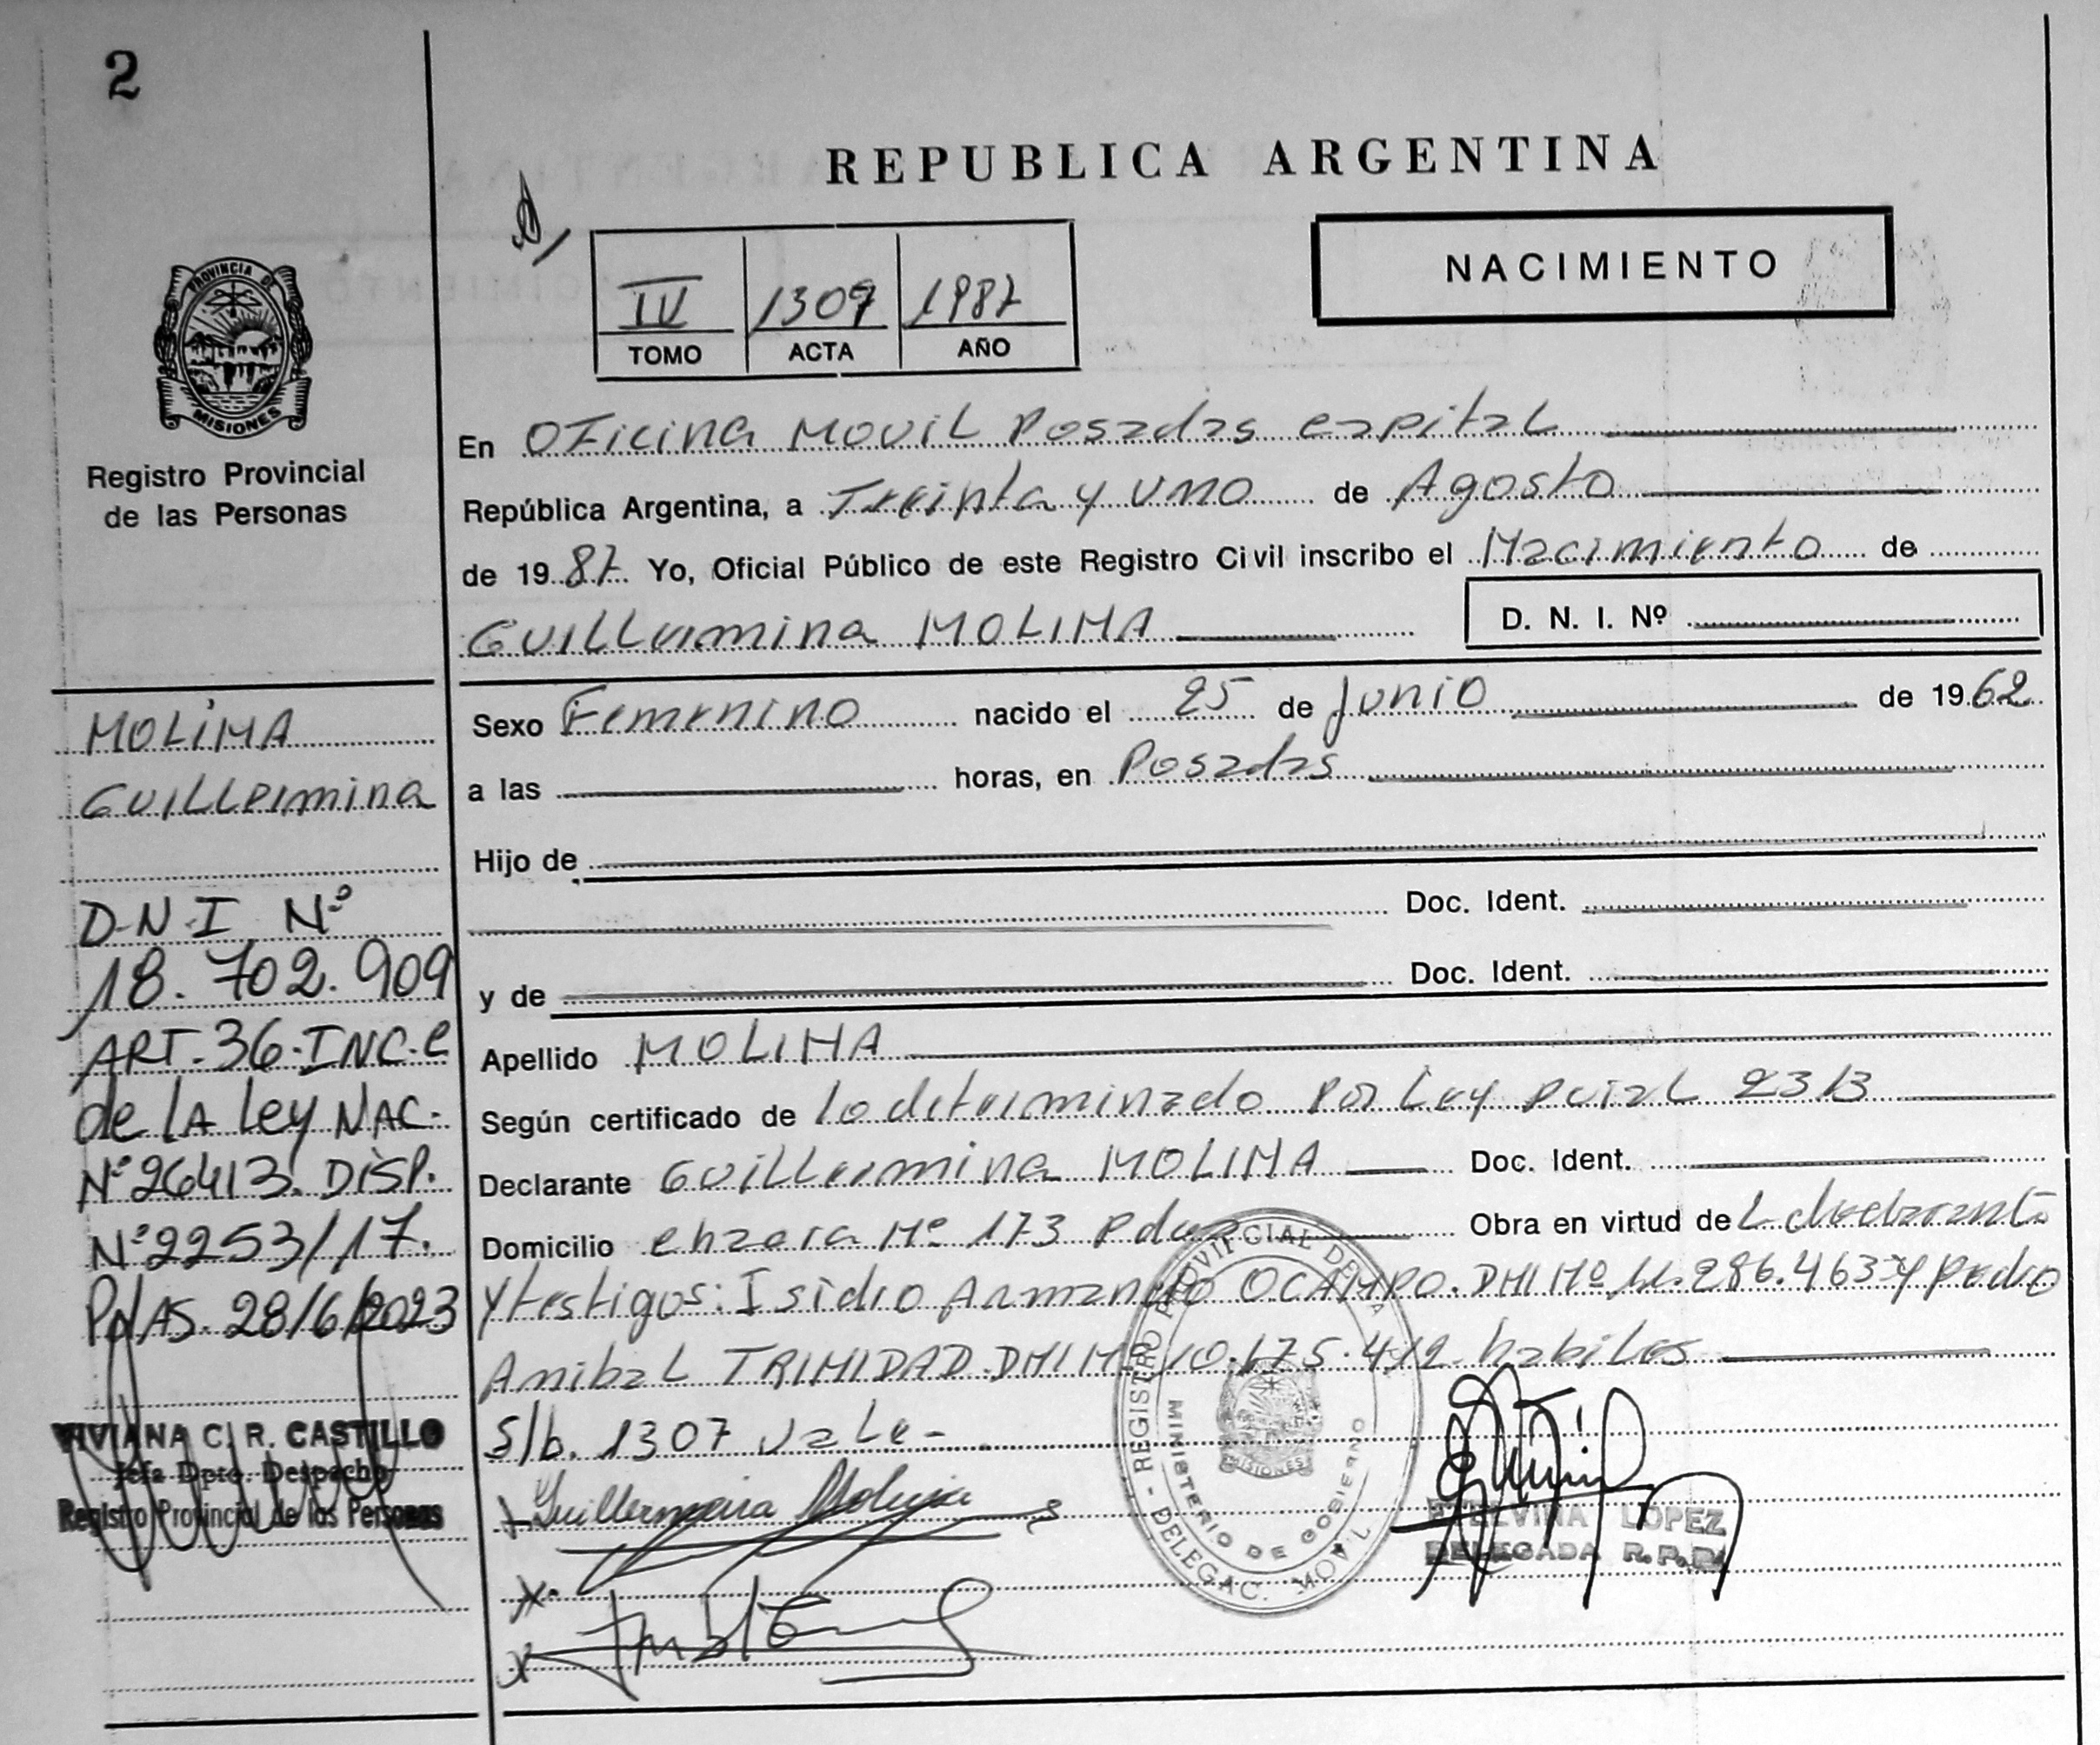 2
REPUBLICA ARGENTINA
NACIMIENTO
IV 1309 1987
TOMO ACTA AÑO
PROVINCIA DE
MISIONES
Registro Provincial
de las Personas
En Oficina Movil Posadas capital
República Argentina, a Treinta y uno de Agosto
de 1987 Yo, Oficial Público de este Registro Civil inscribo el Nacimiento de
Guillermina MOLINA D. N. I. Nº
Sexo Femenino nacido el 25 de Junio de 1962
a las horas, en Posadas
Hijo de
Doc. Ident.
y de Doc. Ident.
Apellido MOLINA
Según certificado de lo determinado por Ley pcial 2313
Declarante Guillermina MOLINA Doc. Ident.
Domicilio chacra Nº 173 Pdas Obra en virtud de L declarante
y testigos: Isidro Armando OCAMPO. DNI Nº y Pedro
Anibal TRINIDAD. DNI Nº 10.175.412 habiles
S/b. 1307 vale-
Guillermina Molina
MOLINA
Guillermina
D-N-I Nº
18.702.909
ART.36-INC.C
de LA Ley NAC.
Nº26413. DISP.
Nº2253/17.
PdAS. 28/6/2023
VIVIANA C. R. CASTILLO
Jefa Dpto. Despacho
Registro Provincial de las Personas
REGISTRO PROVINCIAL DE LA
MINISTERIO DE GOBIERNO
MISIONES
DELEGAC. MOVIL
ETELVINA LOPEZ
DELEGADA R.P.P.